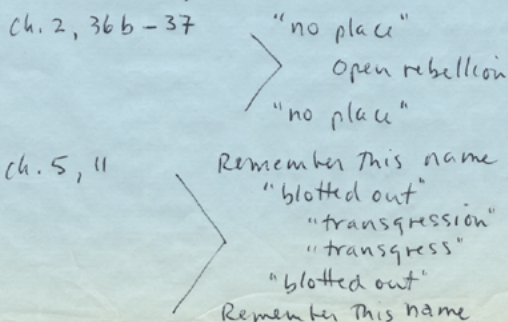 ch. 2, 36b-37 "no place"
Open rebellion
"no place"
ch. 5, 11 Remember this name
"blotted out"
"transgression"
"transgress"
"blotted out"
Remember this name